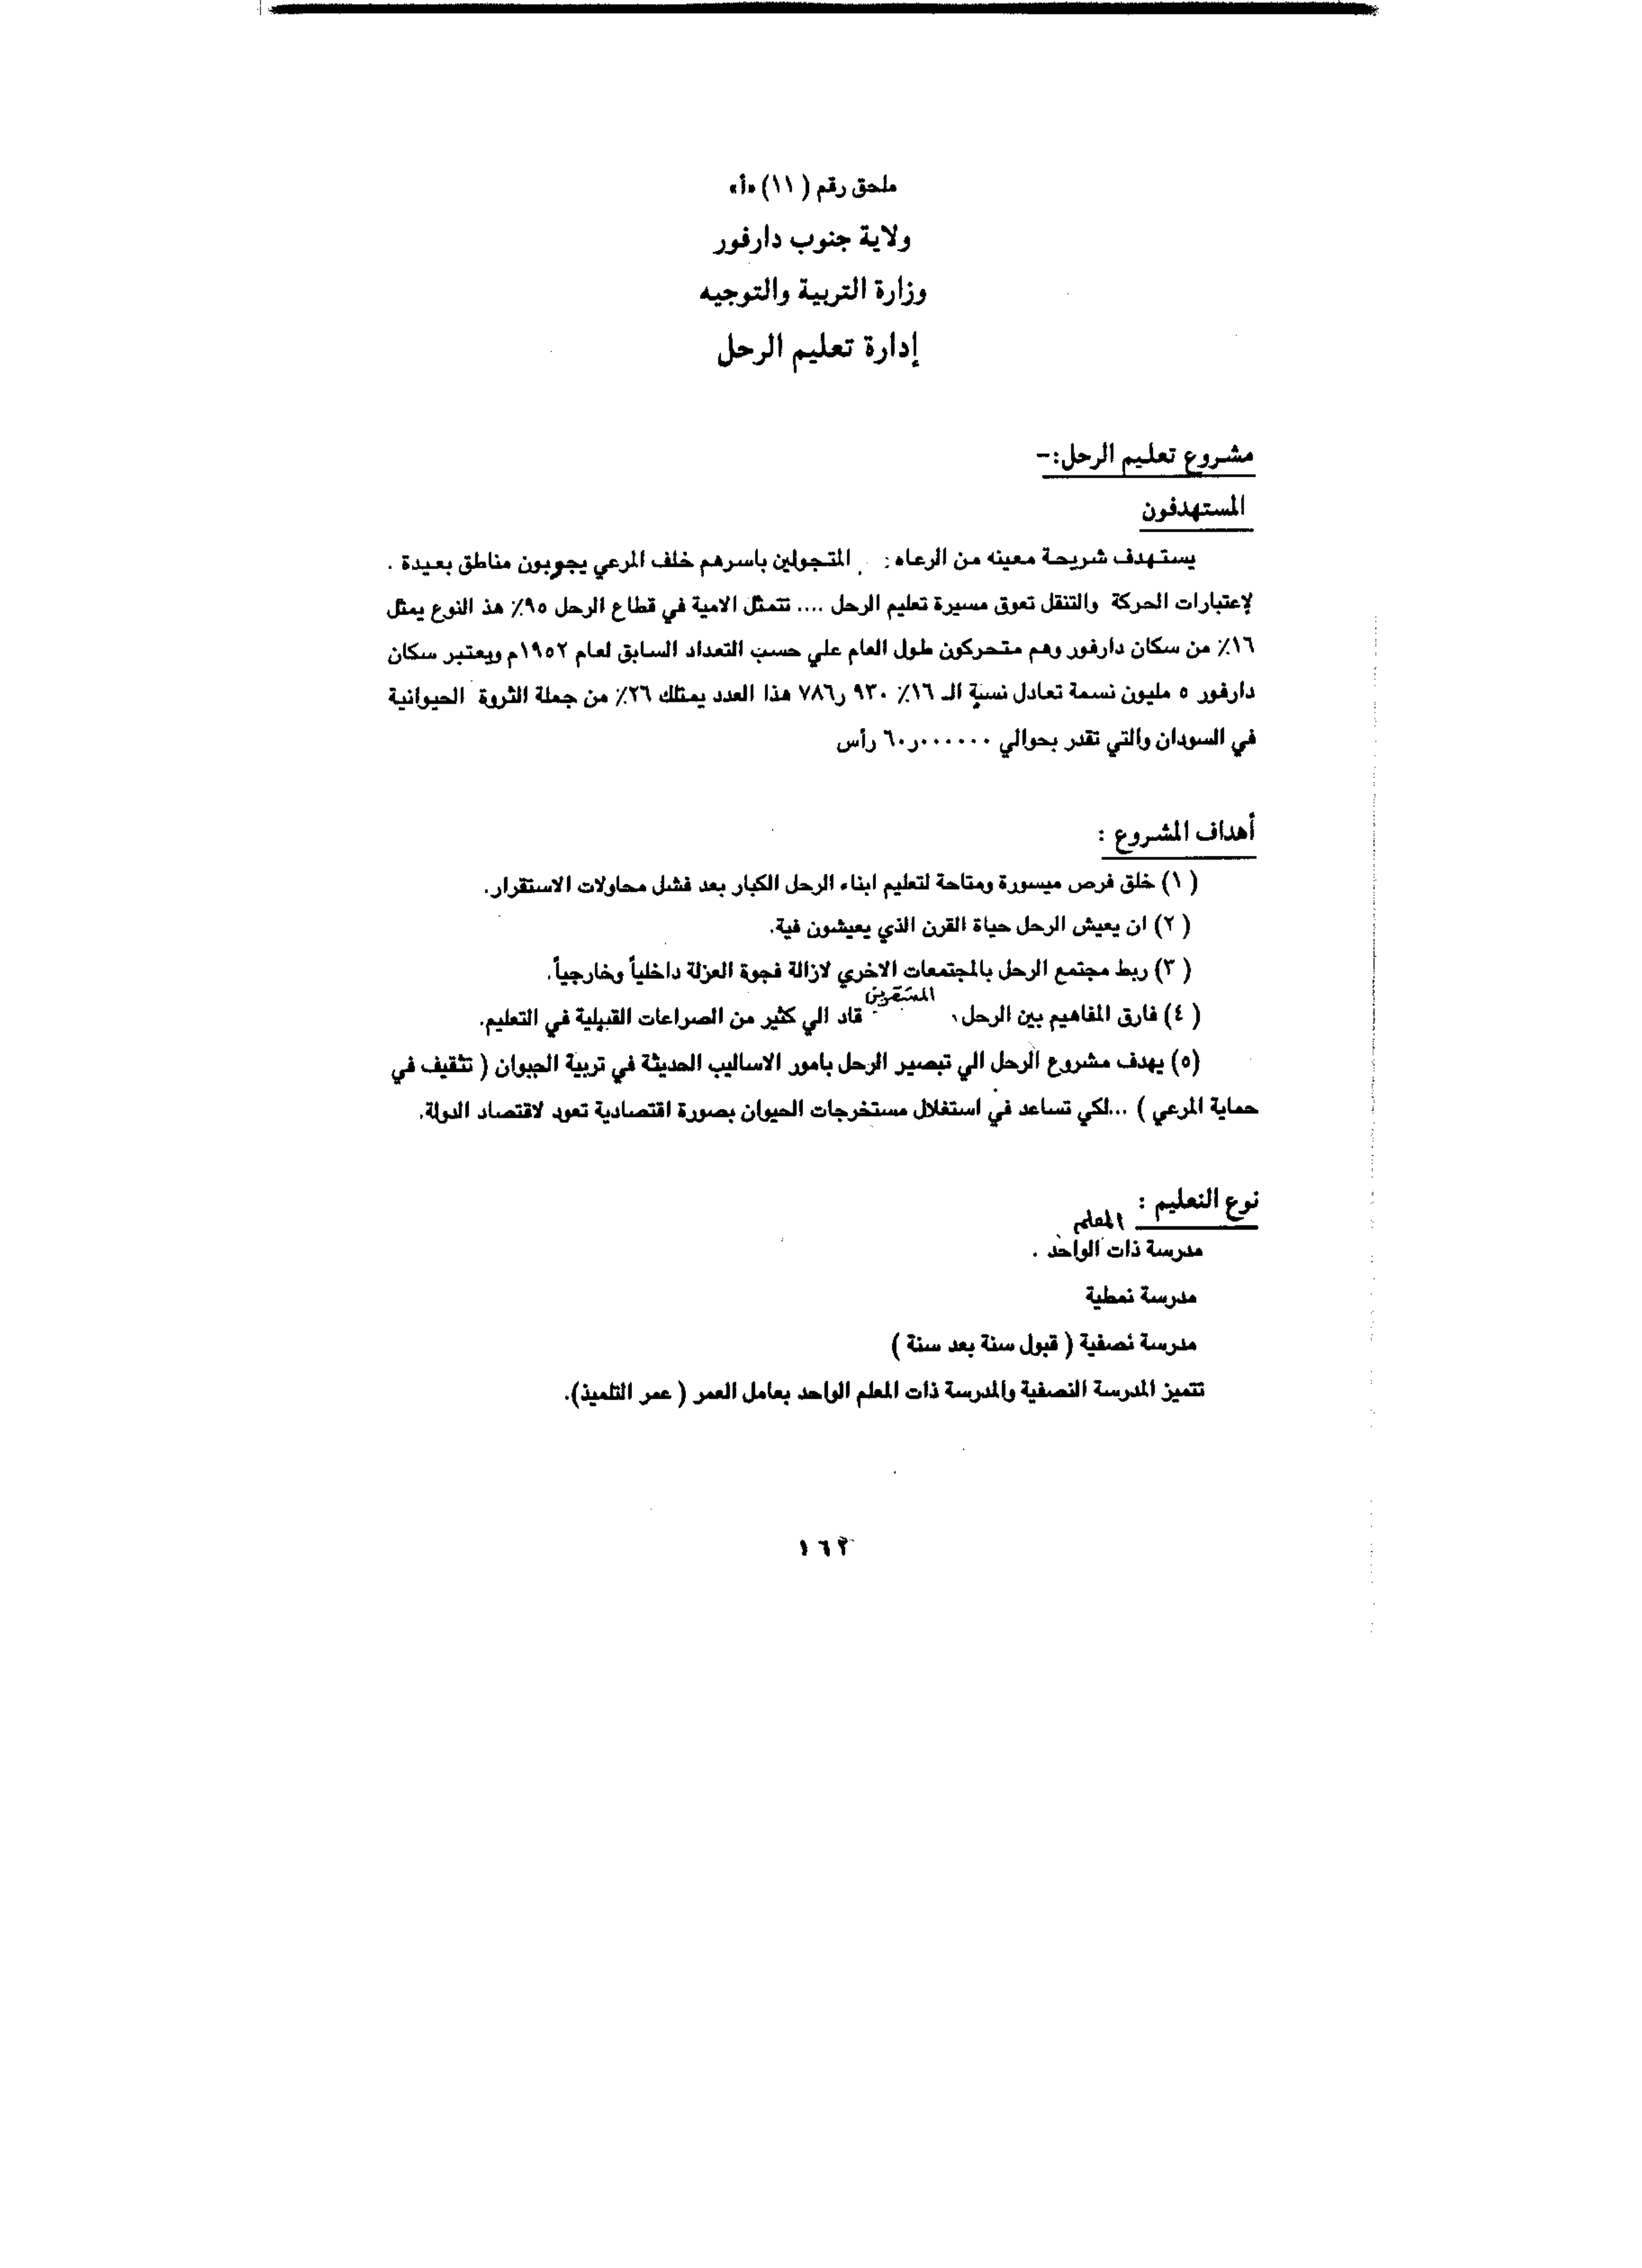 ملحق رقم ( ١١) «أ»
ولاية جنوب دارفور
وزارة التربية والتوجيه
إدارة تعليم الرحل
مشروع تعليم الرحل:-
المستهدفون
يستهدف شريحة معينه من الرعاه : المتجولين باسرهم خلف المرعي يجوبون مناطق بعيدة .
لإعتبارات الحركة والتنقل تعوق مسيرة تعليم الرحل .... تتمثل الامية في قطاع الرحل ٩٥٪ هذ النوع يمثل
١٦٪ من سكان دارفور وهم متحركون طول العام علي حسب التعداد السابق لعام ١٩٥٢م ويعتبر سكان
دارفور ٥ مليون نسمة تعادل نسبة الـ ١٦٪ ٩٣٠ ر٧٨٦ هذا العدد يمتلك ٢٦٪ من جملة الثروة الحيوانية
في السودان والتي تقدر بحوالي ٠٠٠٠٠٠ر٦٠ رأس
أهداف المشروع :
( ١) خلق فرص ميسورة ومتاحة لتعليم ابناء الرحل الكبار بعد فشل محاولات الاستقرار.
( ٢) ان يعيش الرحل حياة القرن الذي يعيشون فية.
( ٣) ربط مجتمع الرحل بالمجتمعات الاخري لازالة فجوة العزلة داخلياً وخارجياً.
( ٤) فارق المفاهيم بين الرحل، المستقرين قاد الي كثير من الصراعات القبلية في التعليم.
(٥) يهدف مشروع الرحل الي تبصير الرحل بامور الاساليب الحديثة في تربية الحيوان ( تثقيف في
حماية المرعي ) ...لكي تساعد في استغلال مستخرجات الحيوان بصورة اقتصادية تعود لاقتصاد الدولة.
نوع التعليم :
مدرسة ذات المعلم الواحد .
مدرسة نمطية
مدرسة نصفية ( قبول سنة بعد سنة )
تتميز المدرسة النصفية والمدرسة ذات المعلم الواحد بعامل العمر ( عمر التلميذ).
١٦٢